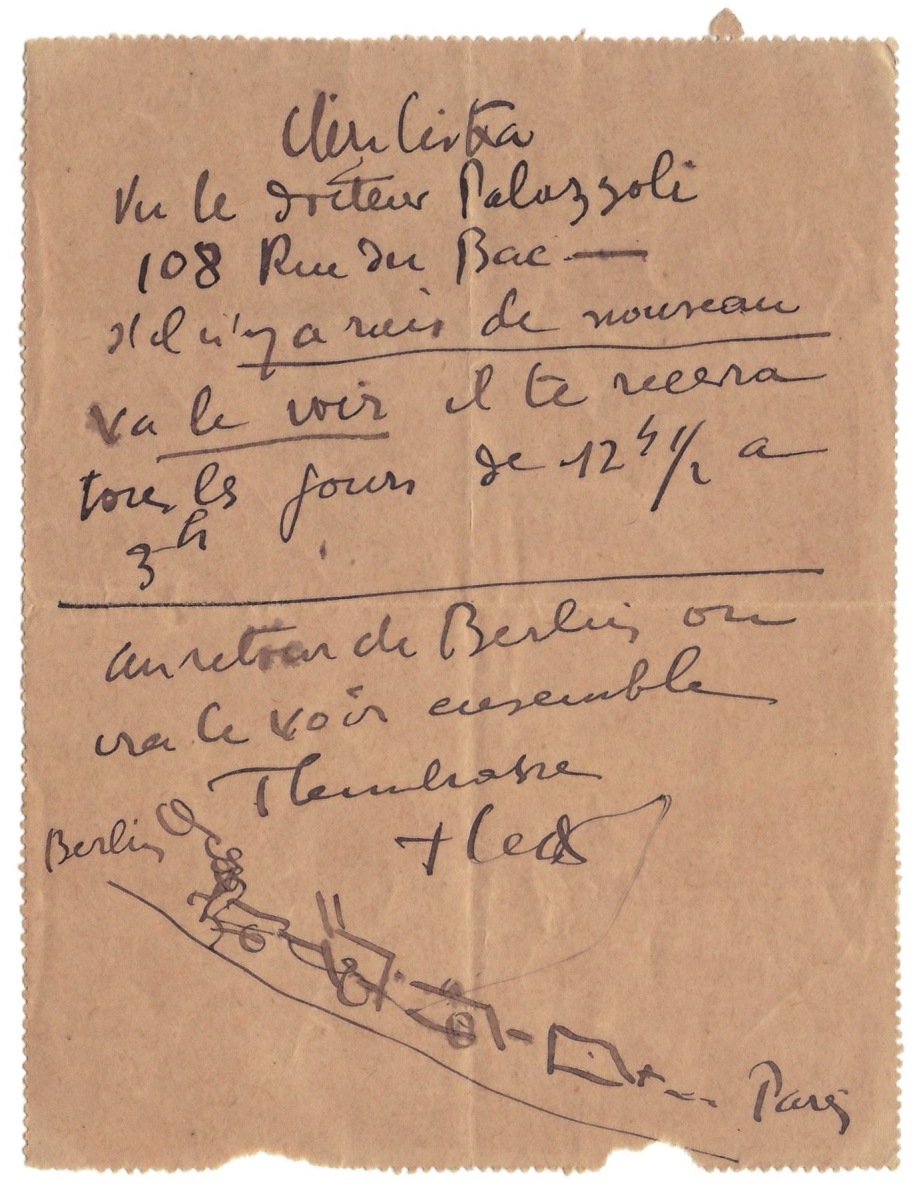 Vu le docteur Palazzoli
108 Rue du Bac —
s'il n'y a rien de nouveau
va le voir il te recevra
tous les jours de 12 h 1/2 a
3h
au retour de Berlin on
ira le voir ensemble
T'embrasse
Berlin
Paris